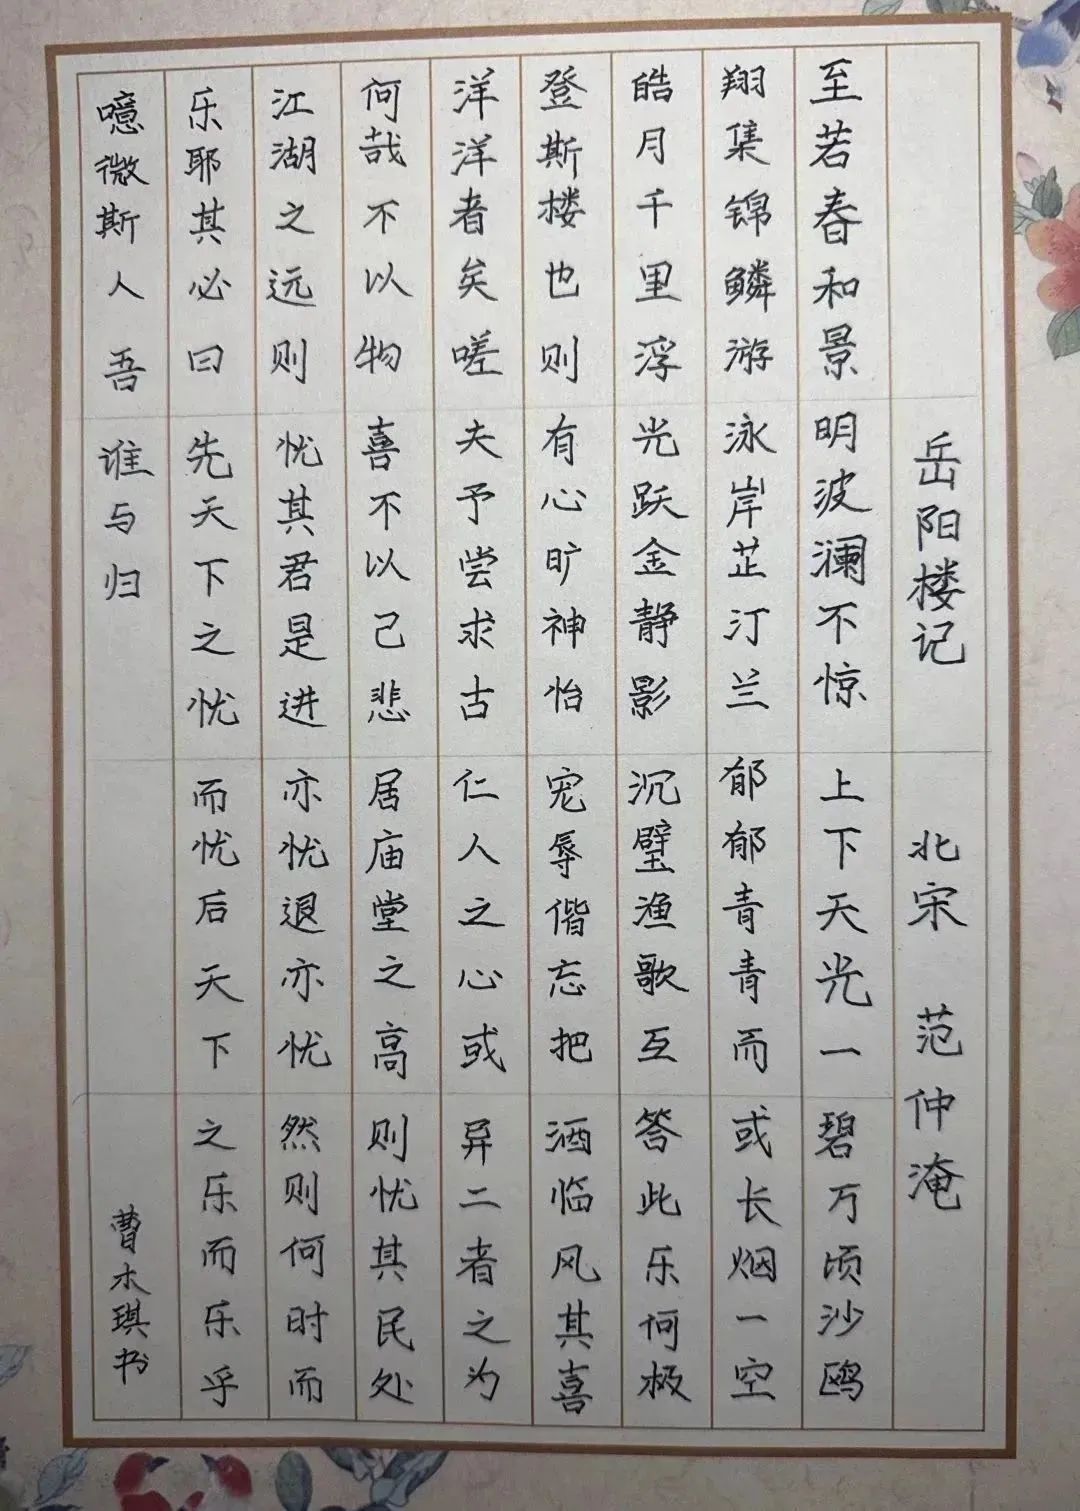 岳阳楼记 北宋 范仲淹
至若春和景明波澜不惊上下天光一碧万顷沙鸥
翔集锦鳞游泳岸芷汀兰郁郁青青而或长烟一空
皓月千里浮光跃金静影沉璧渔歌互答此乐何极
登斯楼也则有心旷神怡宠辱偕忘把酒临风其喜
洋洋者矣嗟夫予尝求古仁人之心或异二者之为
何哉不以物喜不以己悲居庙堂之高则忧其民处
江湖之远则忧其君是进亦忧退亦忧然则何时而
乐耶其必曰先天下之忧而忧后天下之乐而乐乎
噫微斯人吾谁与归
曹木琪书